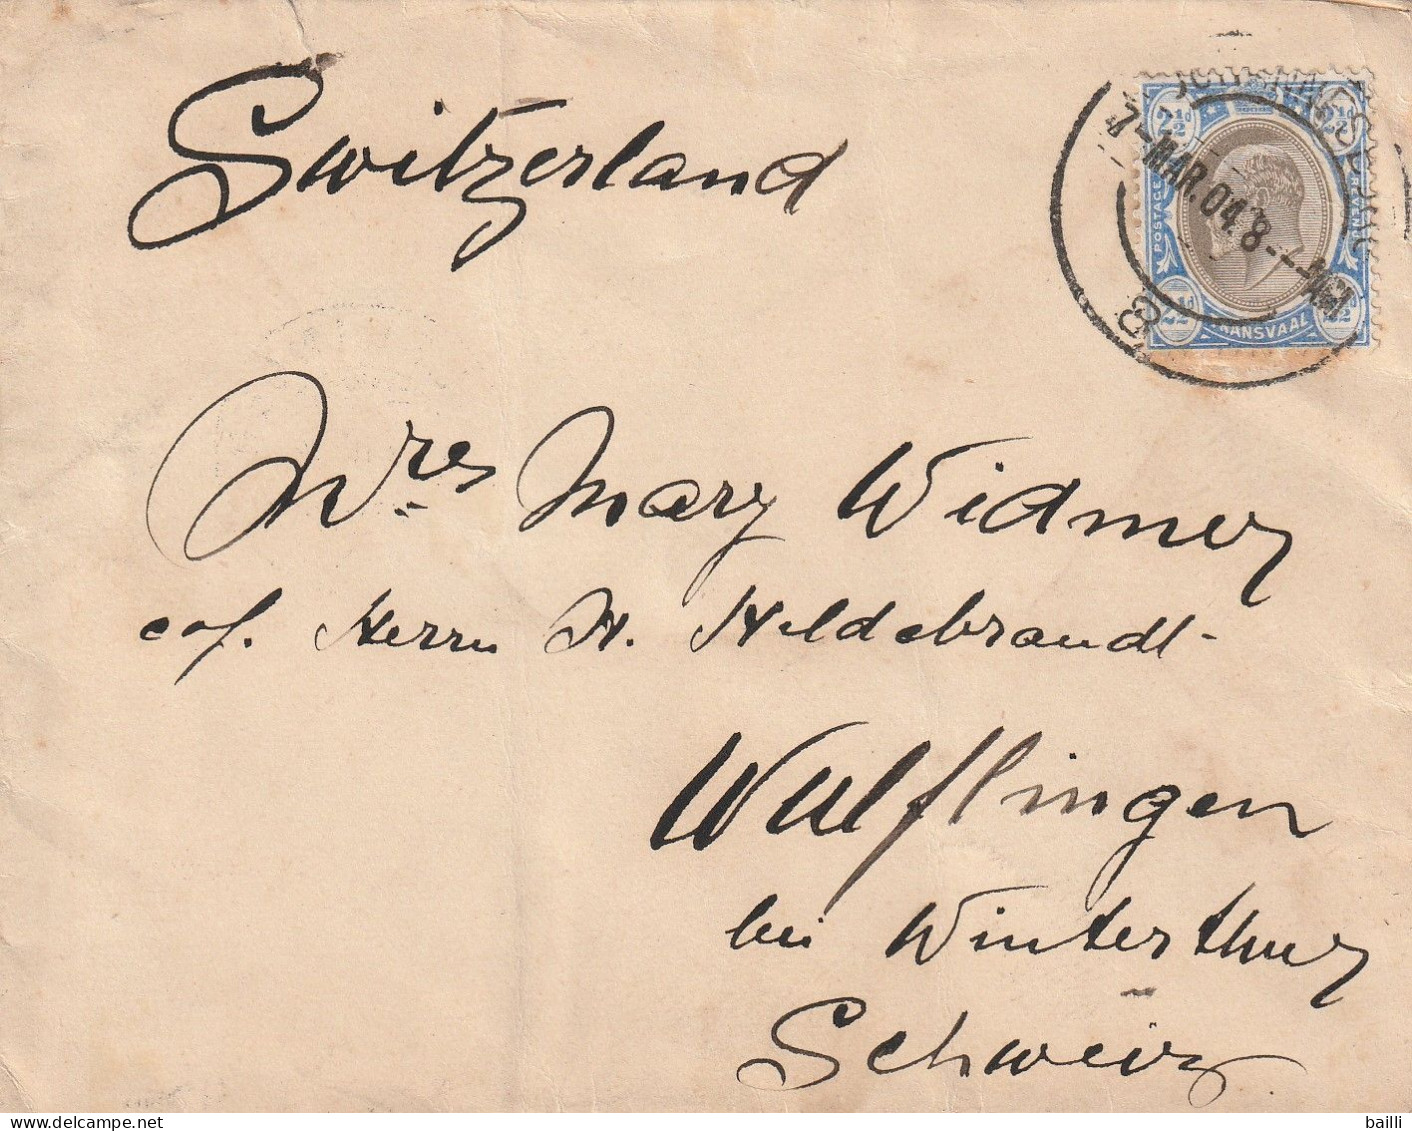 Switzerland
JOHANNESBURG
7-MAR.04.8--PM
8
2½d 2½d
POSTAGE REVENUE
2½d 2½d
TRANSVAAL
Mres Mary Widmer
c/of. Herrn H. Hildebrandt-
Wülflingen
bei Winterthur
Schweiz
delcampe.net
bailli